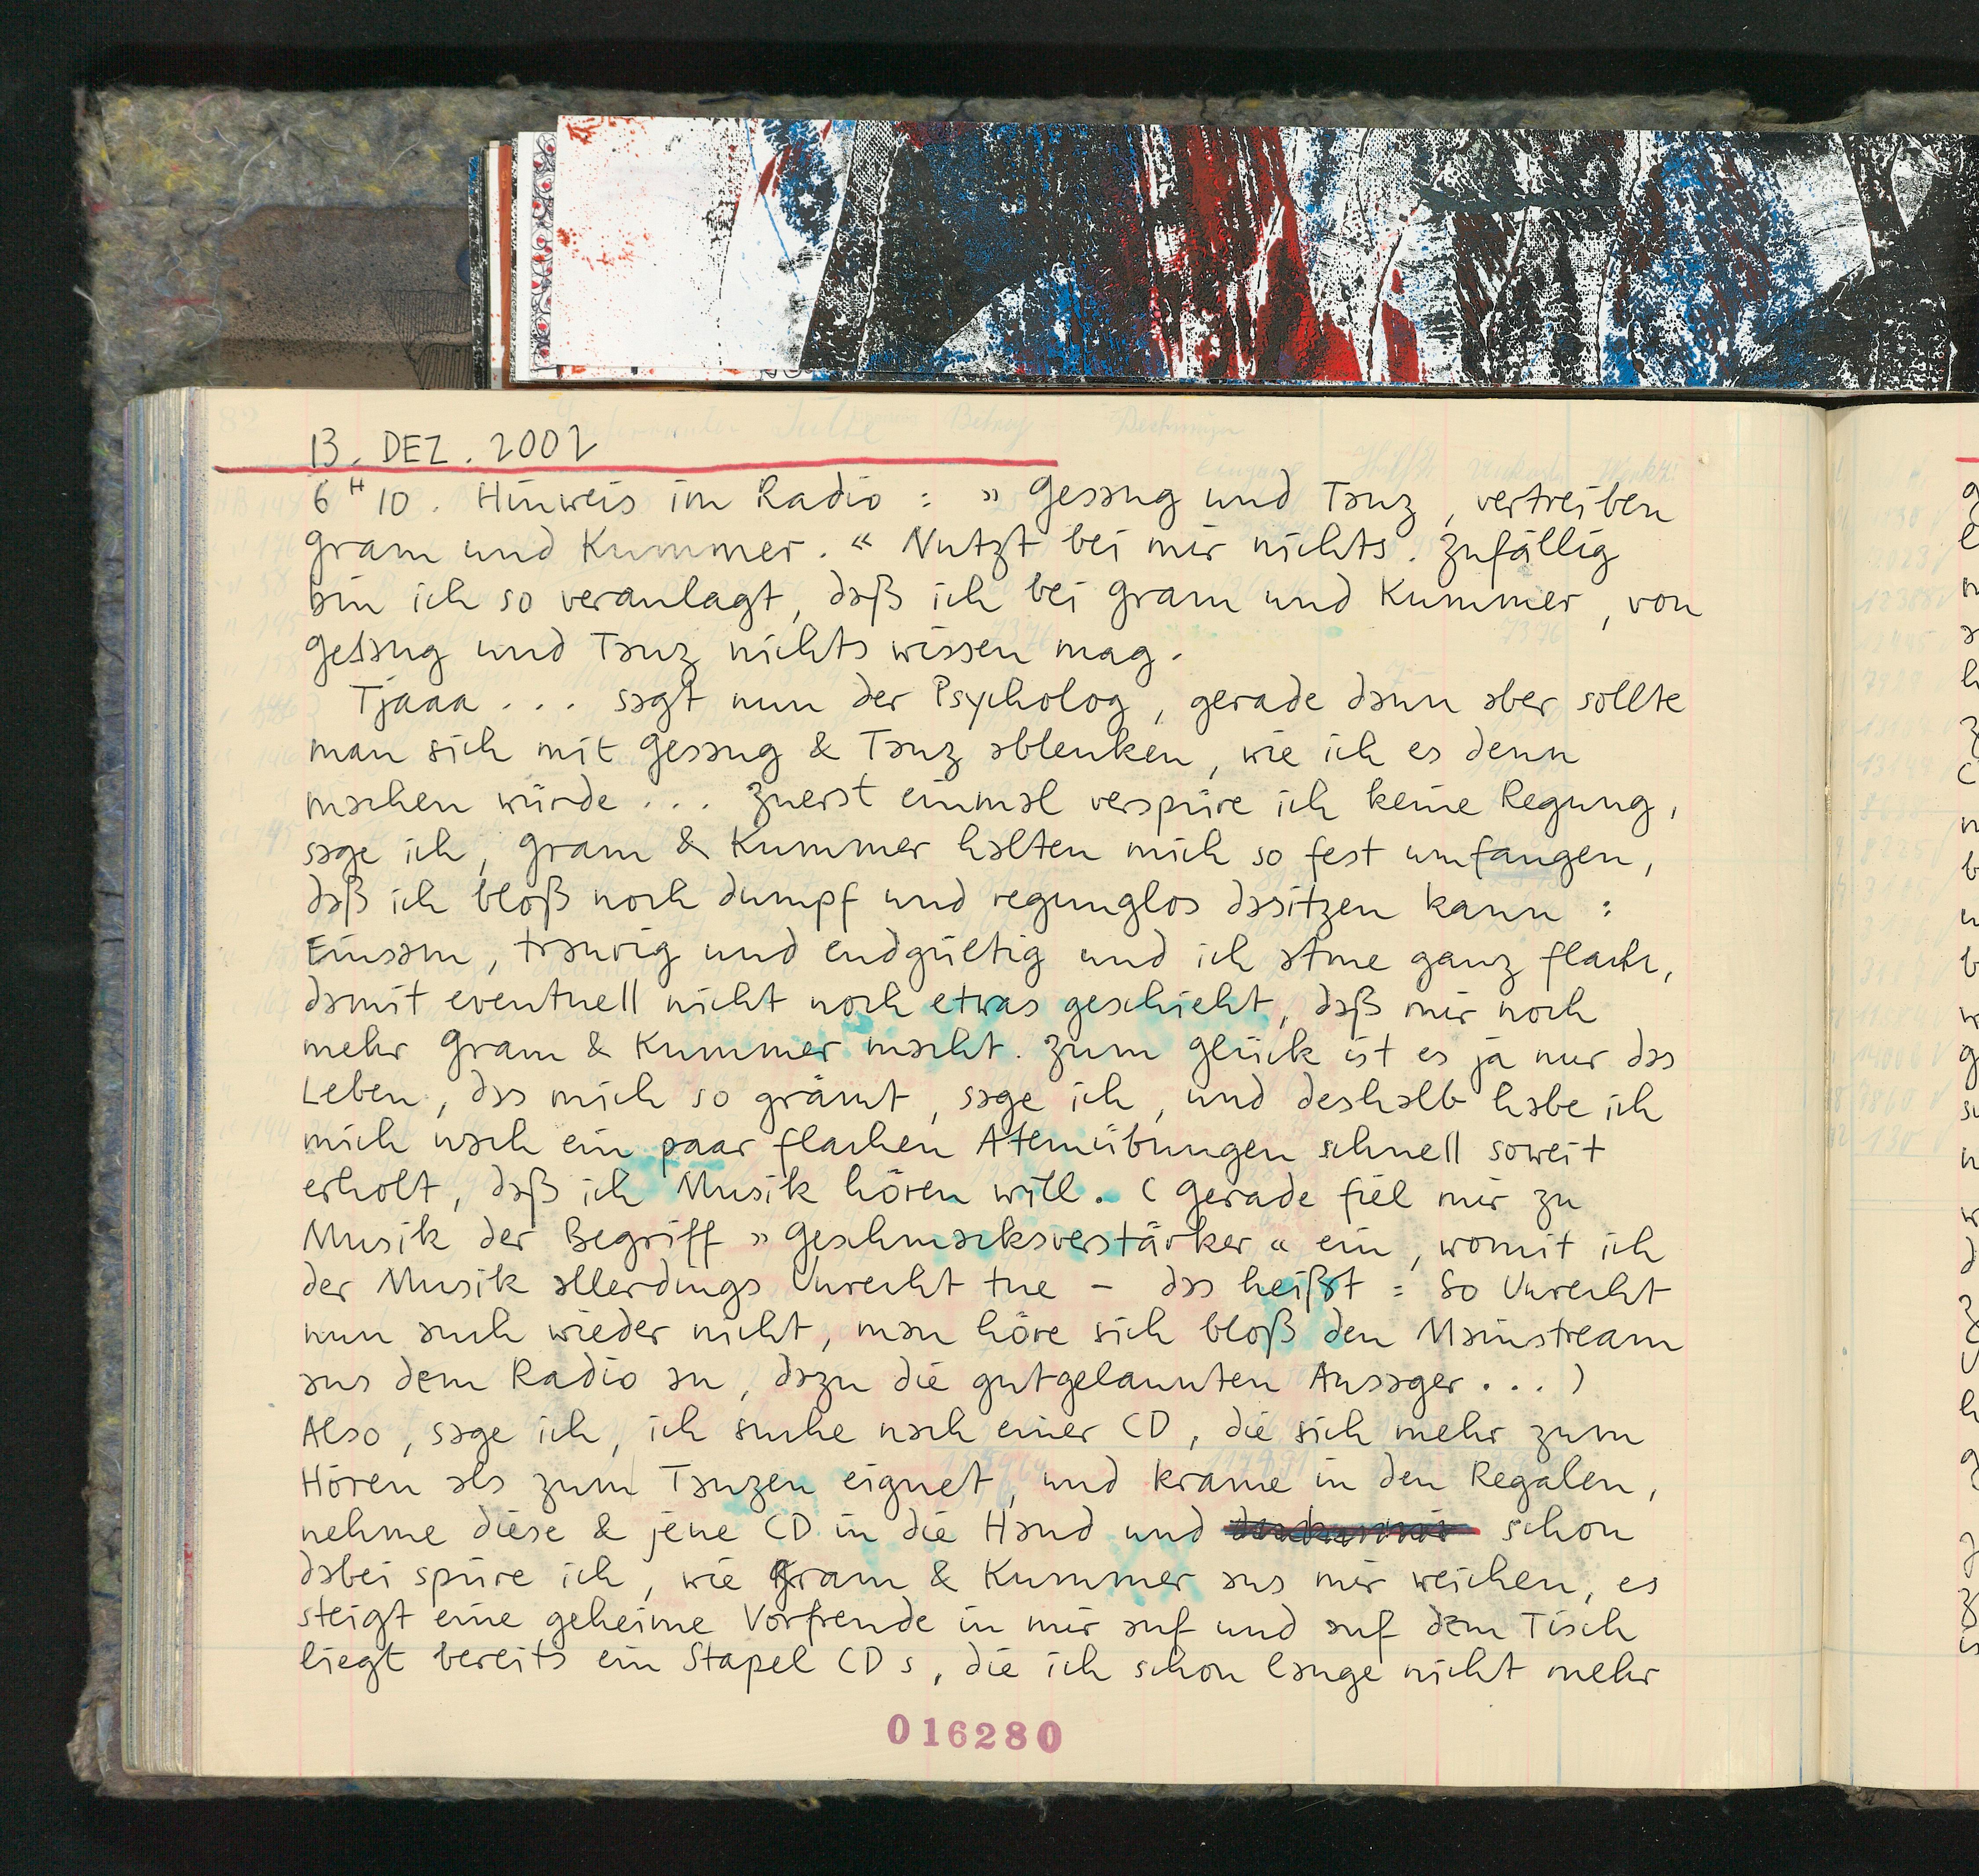 13. DEZ. 2002
6 H 10. Hinweis im Radio: »Gesang und Tanz, vertreiben
Gram und Kummer.« Nutzt bei mir nichts. Zufällig
bin ich so veranlagt, daß ich bei Gram und Kummer, von
Gesang und Tanz nichts wissen mag.
Tjaaa... sagt nun der Psycholog, gerade dann aber sollte
man sich mit Gesang & Tanz ablenken, wie ich es denn
machen würde... Zuerst einmal verspüre ich keine Regung,
sage ich, Gram & Kummer halten mich so fest umfangen,
daß ich bloß noch dumpf und regunglos dasitzen kann:
Einsam, traurig und endgültig und ich atme ganz flach,
damit eventuell nicht noch etwas geschieht, daß mir noch
mehr Gram & Kummer macht. Zum Glück ist es ja nur das
Leben, das mich so grämt, sage ich, und deshalb habe ich
mich nach ein paar flachen Atemübungen schnell soweit
erholt, daß ich Musik hören will. (Gerade fiel mir zu
Musik der Begriff »Geschmacksverstärker« ein, womit ich
der Musik allerdings Unrecht tue – das heißt: So Unrecht
nun auch wieder nicht, man höre sich bloß den Mainstream
aus dem Radio an, dazu die gutgelaunten Ansager...)
Also, sage ich, ich suche nach einer CD, die sich mehr zum
Hören als zum Tanzen eignet, und krame in den Regalen,
nehme diese & jene CD in die Hand und schon
dabei spüre ich, wie Gram & Kummer aus mir weichen, es
steigt eine geheime Vorfreude in mir auf und auf dem Tisch
liegt bereits ein Stapel CDs, die ich schon lange nicht mehr
016280